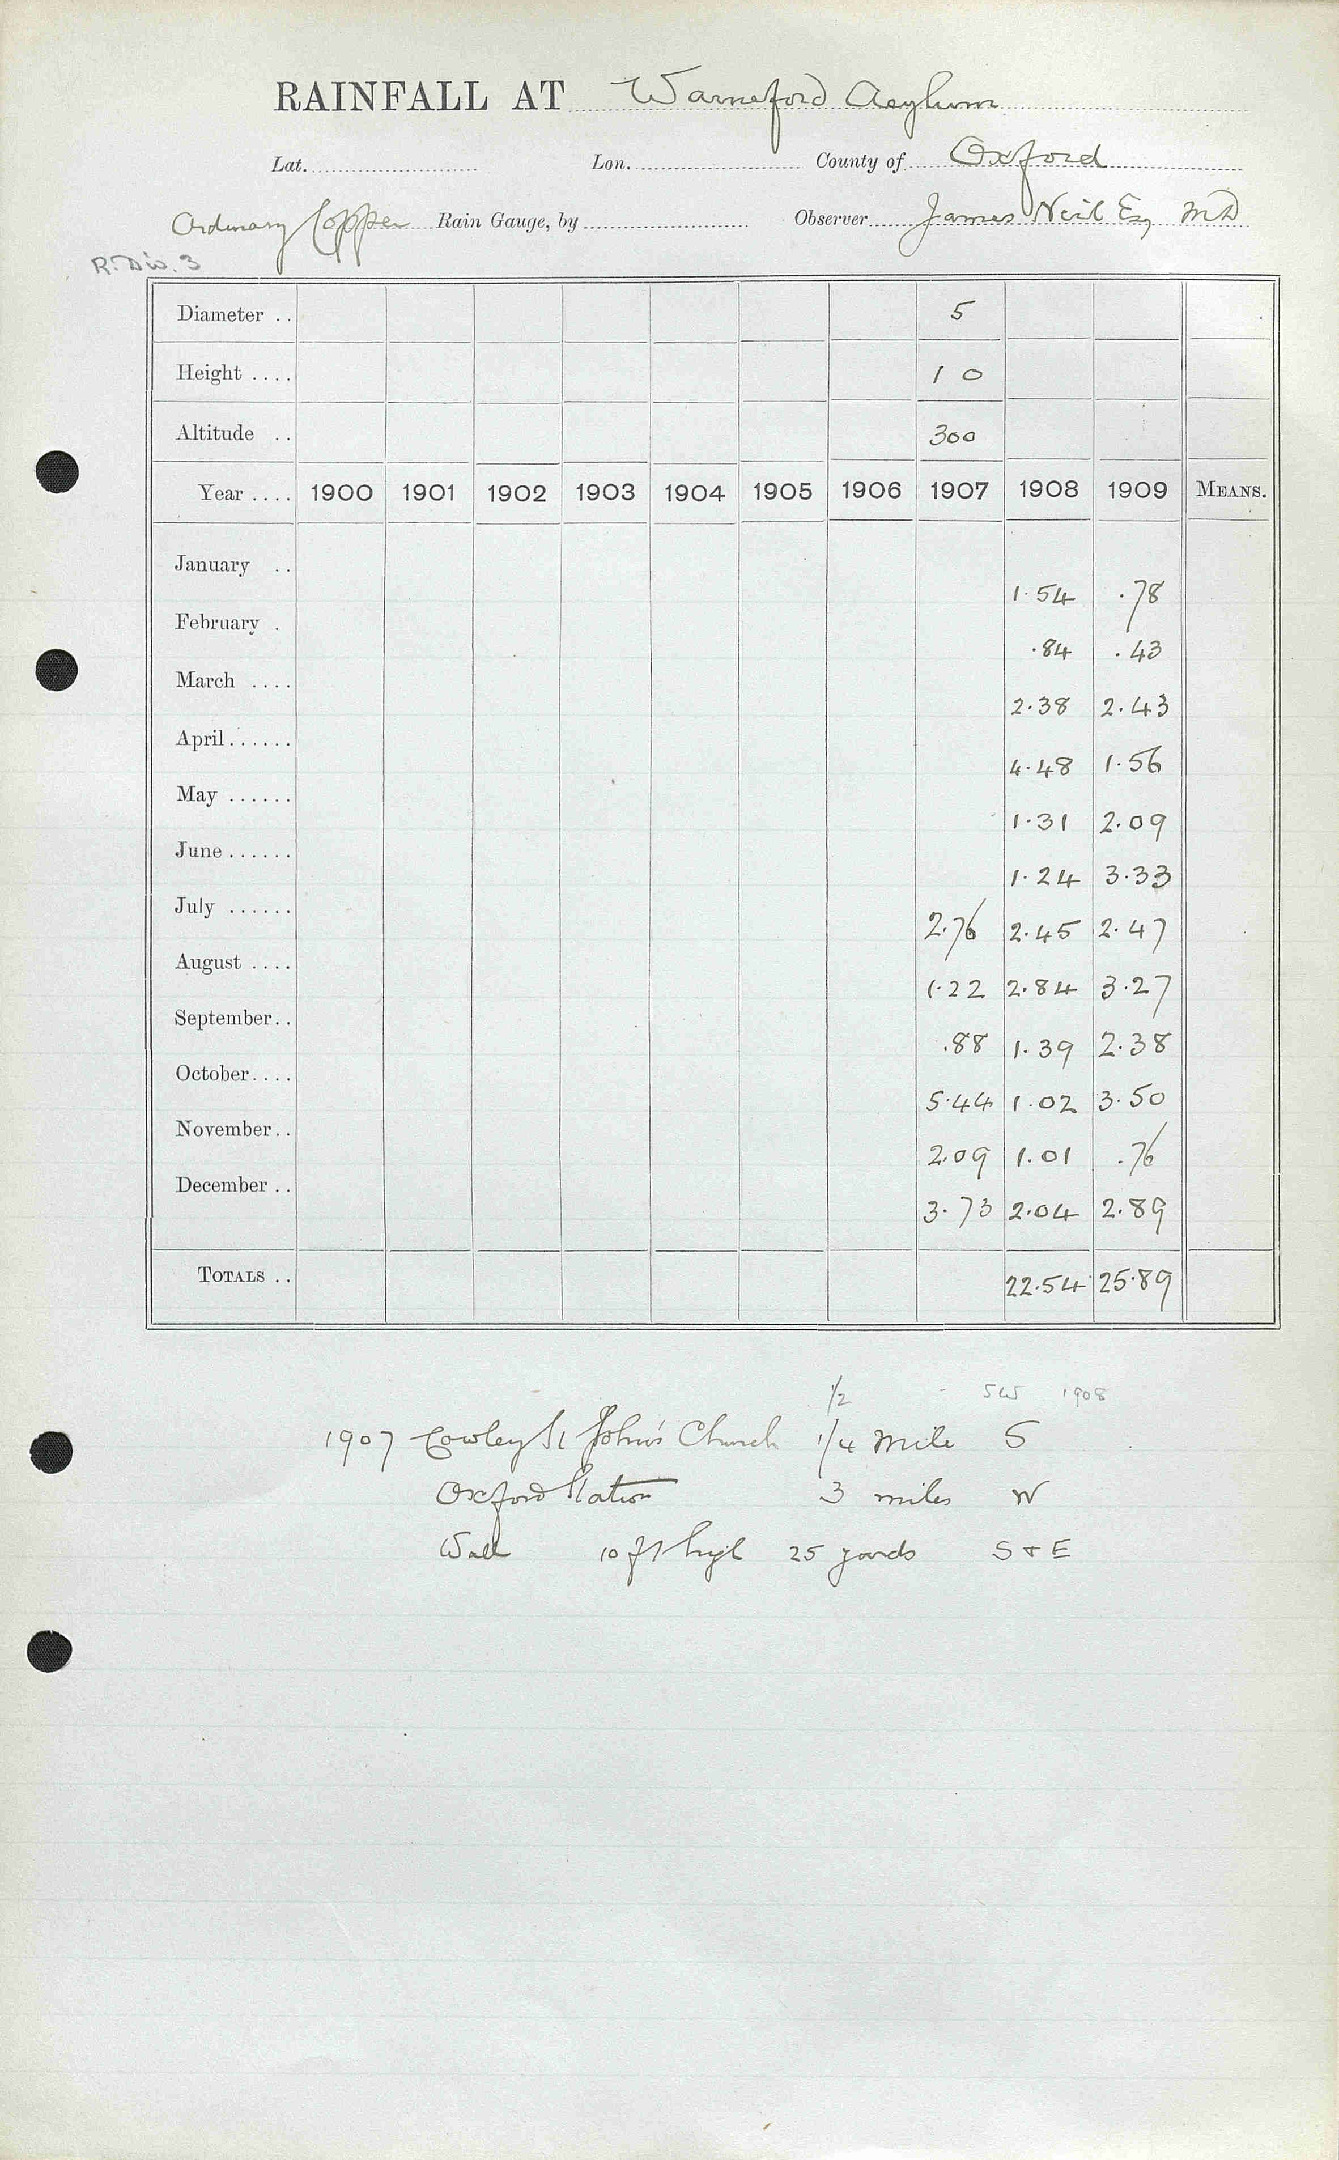 RAINFALL AT Warneford Asylum
Lat. Lon. County of Oxford
Ordinary Copper Rain Gauge, by Observer James Neil Esq MD
R. Div. 3
Diameter .. 5
Height .... 1 0
Altitude .. 300
Year .... 1900 1901 1902 1903 1904 1905 1906 1907 1908 1909 MEANS.
January .. 1.54 .78
February . .84 .43
March .... 2.38 2.43
April ...... 4.48 1.56
May ...... 1.31 2.09
June ...... 1.24 3.33
July ...... 2.76 2.45 2.47
August .... 1.22 2.84 3.27
September .. .88 1.39 2.38
October .... 5.44 1.02 3.50
November .. 2.09 1.01 .76
December .. 3.73 2.04 2.89
TOTALS .. 22.54 25.89
1/2 SW 1908
1907 Cowley St John's Church 1/4 Mile S
Oxford Station 3 miles W
Wall 10 ft high 25 yards S & E